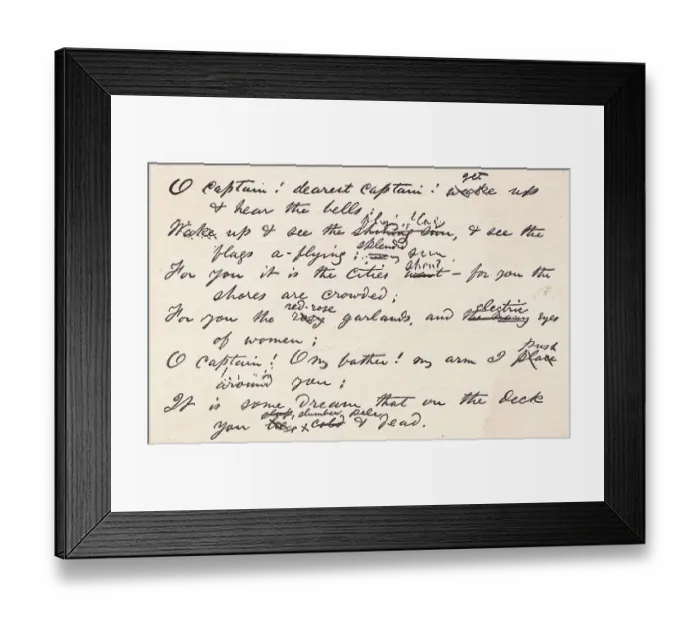 get
O captain! dearest captain! wake up
& hear the bells;
Wake up & see the shining sun, & see the
splendid
flags a-flying; sun.
shout
For you it is the cities wait – for you the
shores are crowded;
red-rose electric
For you the rosy garlands, and eyes
of women;
push
O captain! O my father! my arm I place
around you;
It is some dream that on the deck
slumber, paley
you cold & dead.